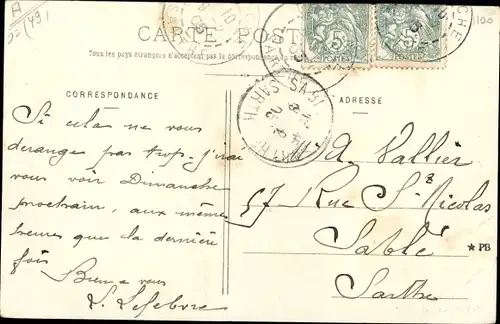 CARTE POST
Tous les pays étrangers n'acceptent pas la correspondance au
CORRESPONDANCE
ADRESSE
Si cela ne vous
derange pas trop j'irai
vous voir Dimanche
prochain, aux mêmes
heures que la dernière
fois
Bien a vous
L. Lefebvre
A. Vallier
57 Rue St Nicolas
Sablé
Sarthe
PB
5c 5c
POSTES POSTES
100